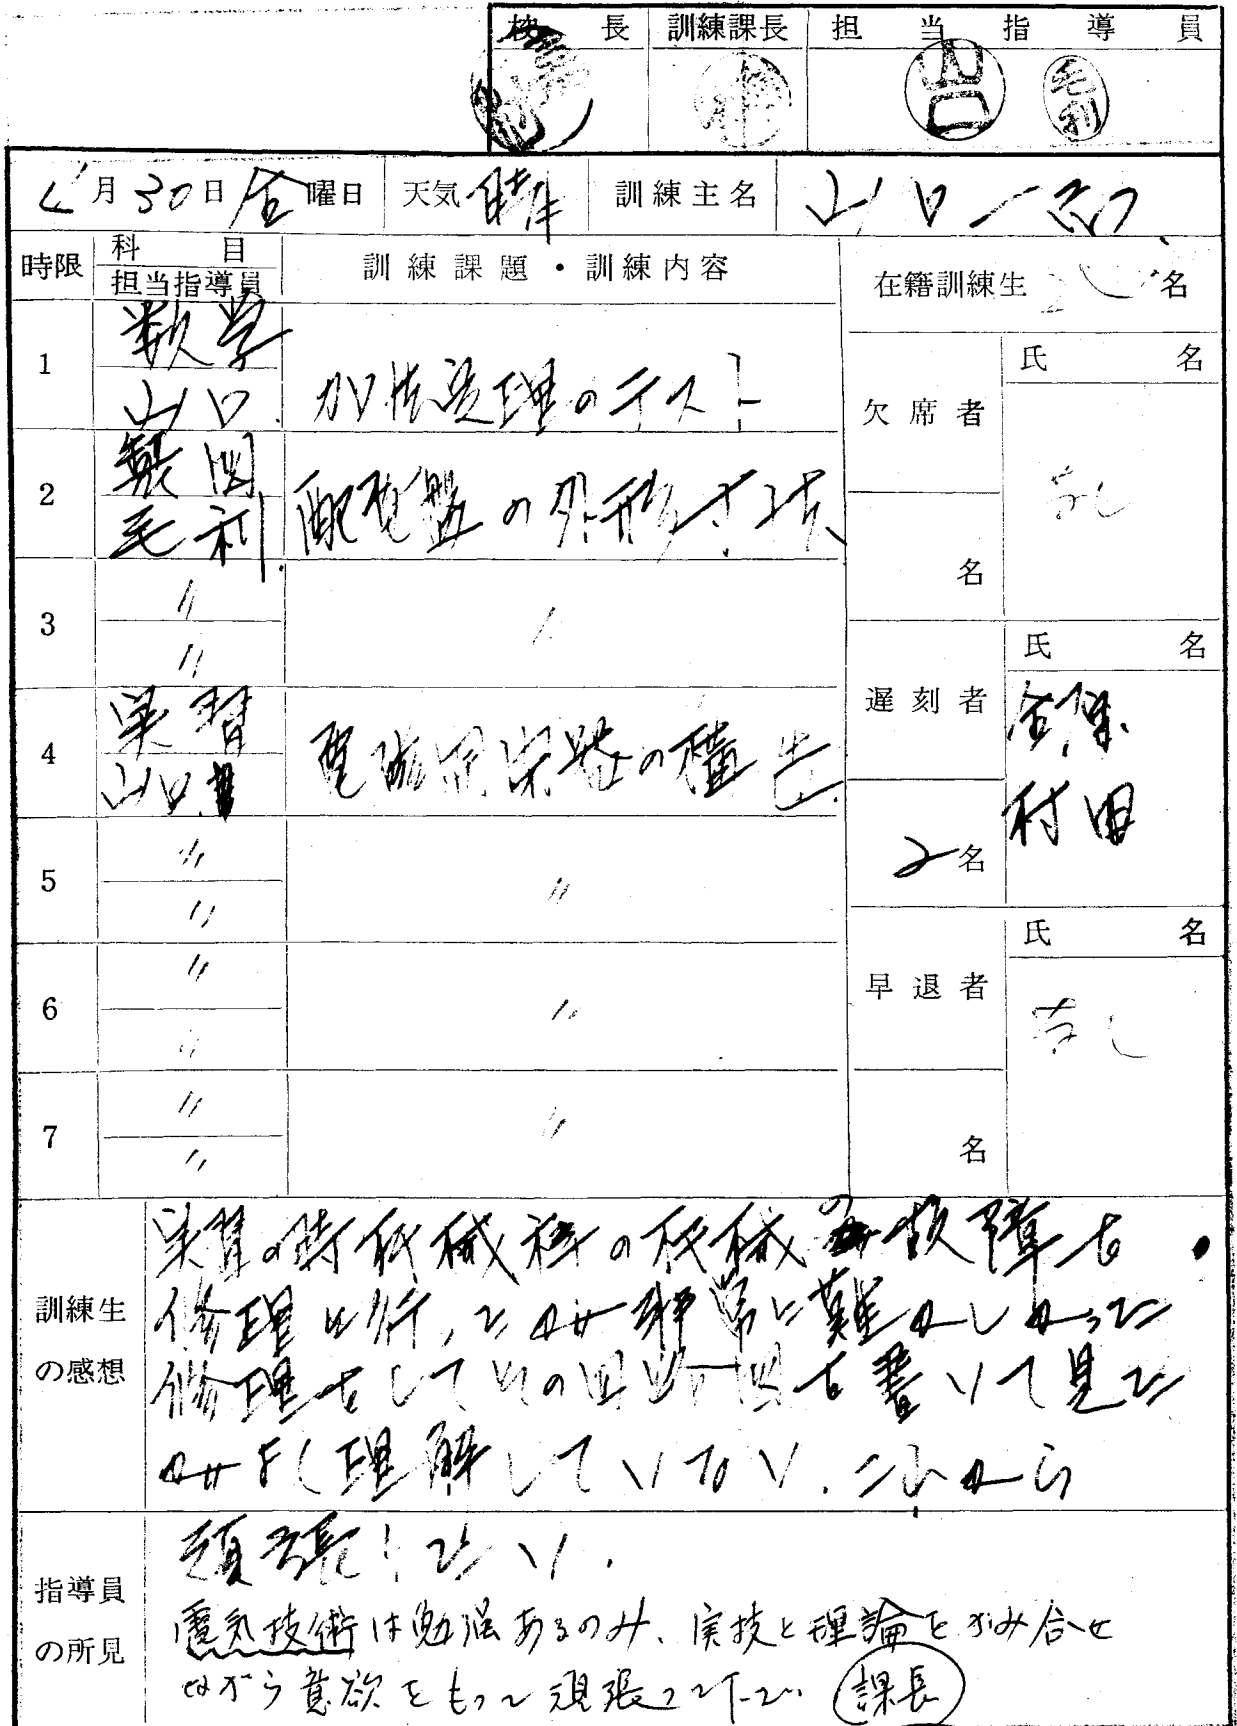 校長 訓練課長 担当指導員
山口 毛利
月30日 金曜日 天気 晴 訓練主名 山口一
時限 科目 訓練課題・訓練内容 在籍訓練生 名
担当指導員
1 数学
山口 加法定理のテスト
欠席者 氏名
なし
名
2 製図
毛利 配電盤の外形寸法
3 〃 〃
〃
4 実習
山口 電磁開閉器の構造
遅刻者 氏名
金保
村田
2名
5 〃 〃
〃
6 〃 〃
〃
早退者 氏名
なし
名
7 〃 〃
〃
訓練生の感想
実習の時機械科の機械の故障を
修理に行ったが非常に難かしかった
修理をしてその回路図を書いて見た
がよく理解していない。これから
頑張りたい。
指導員の所見
電気技術は勉強あるのみ、実技と理論をかみ合せ
ながら意欲をもって頑張って下さい 課長